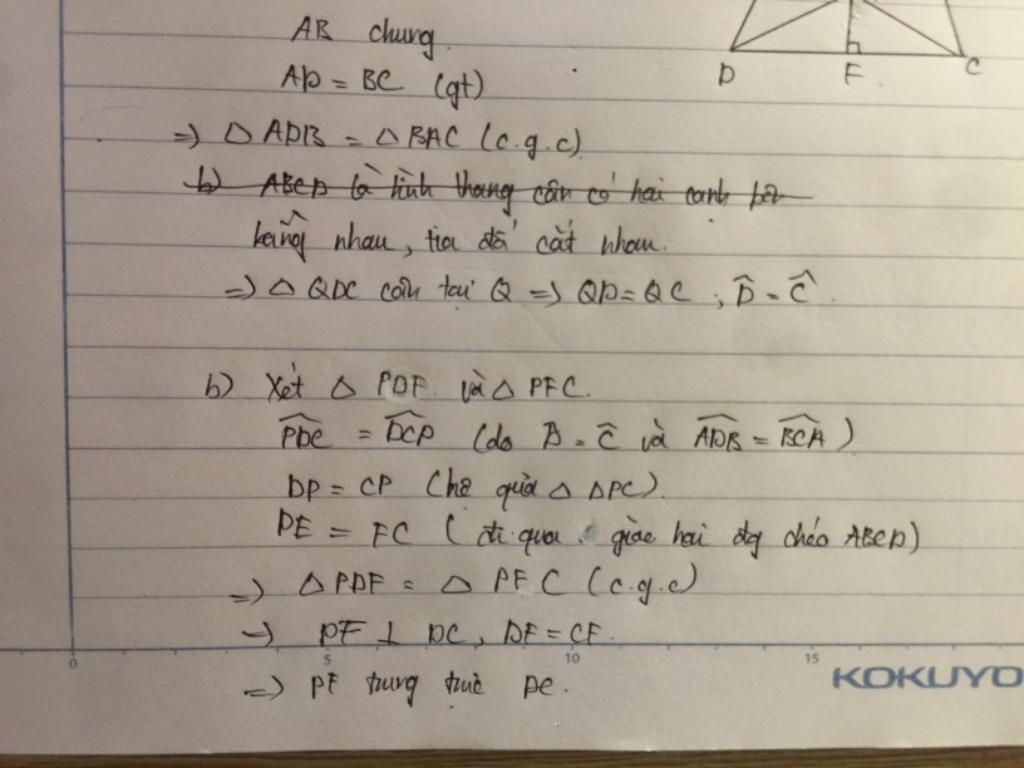 AB chung.
AD = BC (gt)
D F C
=) △ ADB = △ BAC (c.g.c)
b) ABCD là hình thang cân có hai cạnh bên
bằng nhau, tia đó cắt nhau.
=) △ QDC cân tại Q =) QD = QC ; D̂ = Ĉ
b) Xét △ PDF và △ PFC.
P͡DC = D͡CP (do D̂ = Ĉ và A͡DB = B͡CA)
DP = CP (hệ quả △ DPC).
DE = FC (đi qua giao hai đg chéo ABCD)
=) △ PDF = △ PFC (c.g.c)
=) PF ⊥ DC, DF = CF.
=) PF trung trực DC.
0 5 10 15
KOKUYO